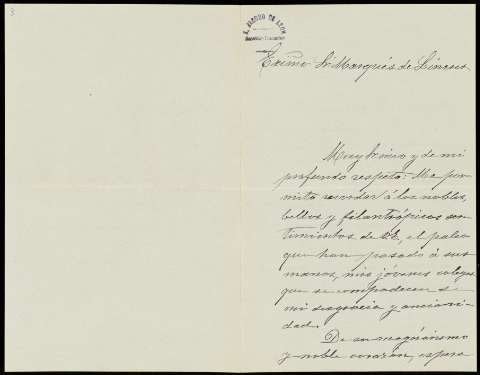 Exímo Sr Marqués de Linares
Muy Sr mio y de mi
profundo respeto: Me per-
mito recordar á los nobles,
bellos y filantrópicos sen-
timientos de
que han pasado á sus
manos, mis jóvenes colegas
que se compadecen de
mi desgracia y anciani-
dad.
De su magnánimo
y noble corazon, espera